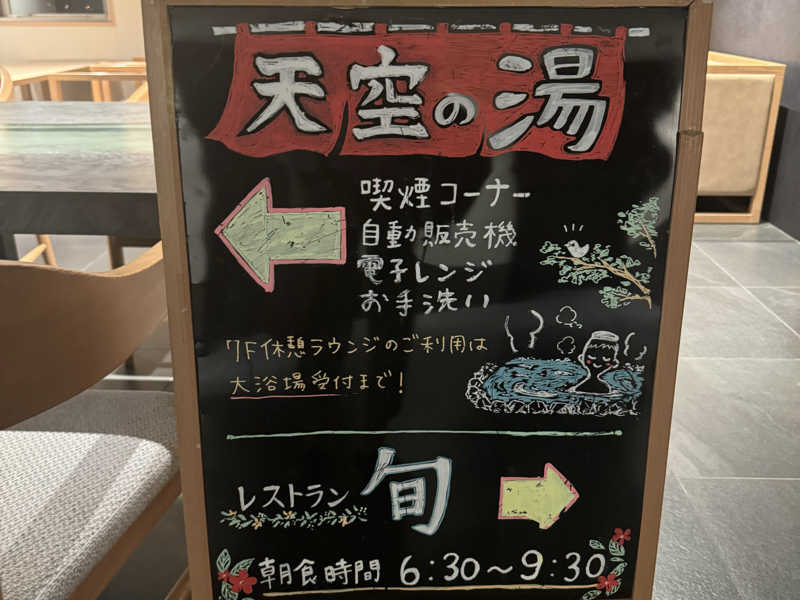 天空の湯
喫煙コーナー
自動販売機
電子レンジ
お手洗い
7F休憩ラウンジのご利用は
大浴場受付まで!
レストラン 旬
朝食時間 6:30～9:30